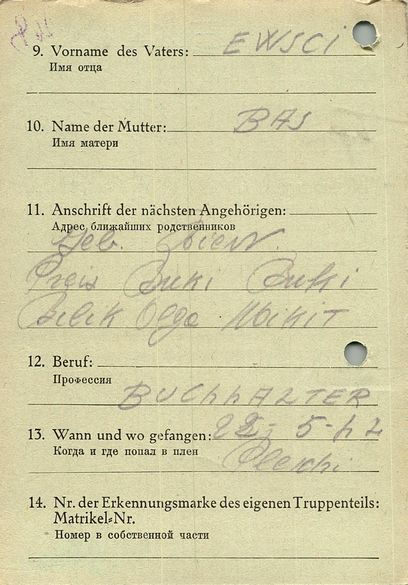 9. Vorname des Vaters: EWSCI
Имя отца
10. Name der Mutter: BAS
Имя матери
11. Anschrift der nächsten Angehörigen:
Адрес ближайших родственников
Geb.
Buki Buki
Olga
12. Beruf:
Профессия
BUCHHALTER
13. Wann und wo gefangen: 22-5-42
Когда и где попал в плен
14. Nr. der Erkennungsmarke des eigenen Truppenteils:
Matrikel-Nr.
Номер в собственной части